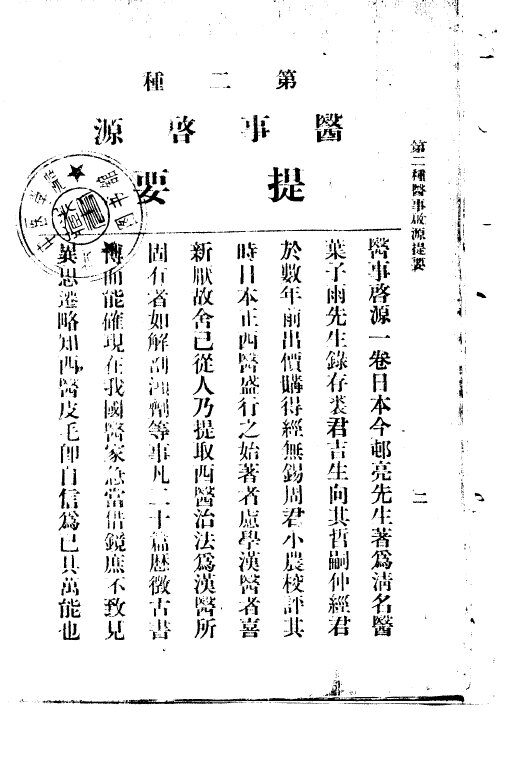 第二種醫事啟源提要
二
第二種
醫事啓源
提要
醫事啓源一卷日本今邨亮先生著爲淸名醫
葉子雨先生錄存裘君吉生向其哲嗣仲經君
於數年前出價購得經無錫周君小農校評其
時日本正西醫盛行之始著者慮學漢醫者喜
新厭故舍己從人乃提取西醫治法爲漢醫所
固有者如解剖等事凡二十篇歷徵古書
博而能確現在我國醫家急當借鏡庶不致見
異思遷略知西醫皮毛卽自信爲已具萬能也